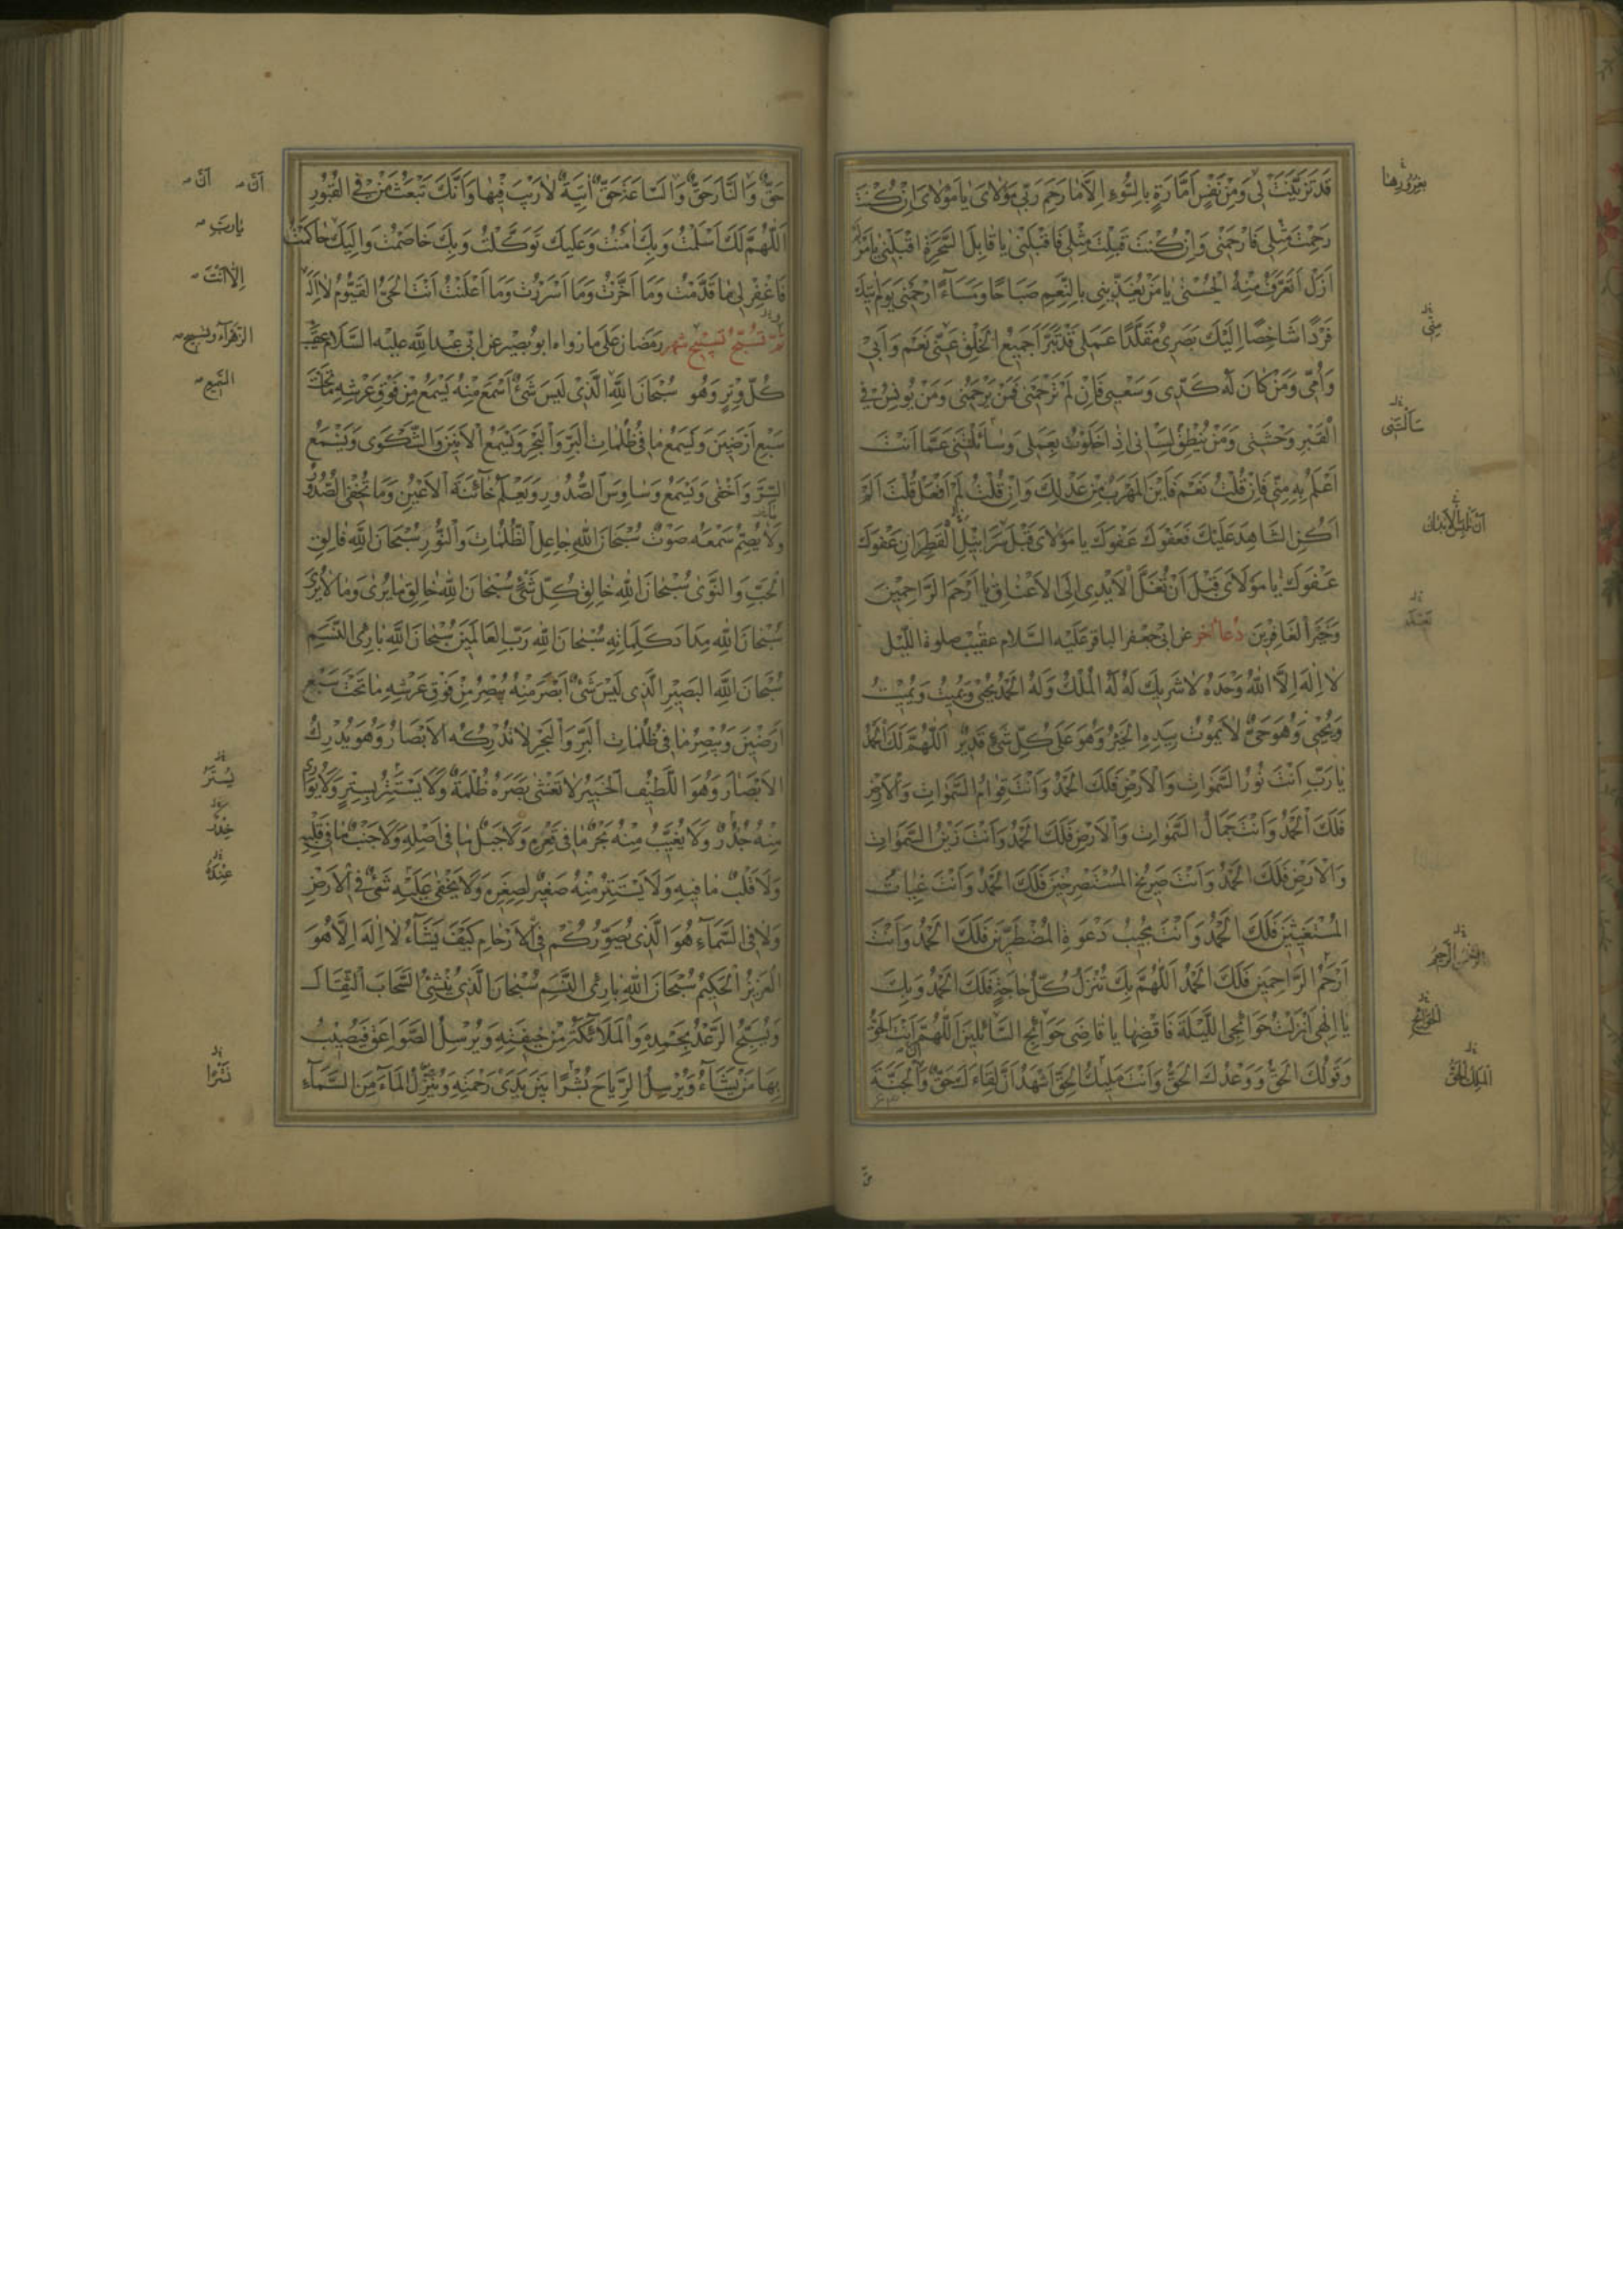 قَدْ تَزَيَّنَتْ لِي وَمِنْ نَفْسٍ اَمَّارَةٍ بِالسُّوءِ اِلَّا مَا رَحِمَ رَبِّي مَوْلَايَ يَا مَوْلَايَ اِنْ كُنْتَ
رَحِمْتَ مِثْلِي فَارْحَمْنِي وَاِنْ كُنْتَ قَبِلْتَ مِثْلِي فَاقْبَلْنِي يَا قَابِلَ السَّحَرَةِ اقْبَلْنِي يَا مَنْ لَمْ
اَزَلْ اَتَعَرَّفُ مِنْهُ الْحُسْنَى يَا مَنْ يُغَذِّينِي بِالنِّعَمِ صَبَاحًا وَمَسَاءً ارْحَمْنِي يَوْمَ اتِيكَ
فَرْدًا شَاخِصًا اِلَيْكَ بَصَرِي مُقَلَّدًا عَمَلِي قَدْ تَبَرَّاَ جَمِيعُ الْخَلْقِ عَنِّي نَعَمْ وَاَبِي
وَاُمِّي وَمَنْ كَانَ لَهُ كَدِّي وَسَعْيِي فَاِنْ لَمْ تَرْحَمْنِي فَمَنْ يَرْحَمُنِي وَمَنْ يُونِسُ فِي
الْقَبْرِ وَحْشَتِي وَمَنْ يُنْطِقُ لِسَانِي اِذَا خَلَوْتُ بِعَمَلِي وَسَائَلْتَنِي عَمَّا اَنْتَ
اَعْلَمُ بِهِ مِنِّي فَاِنْ قُلْتُ نَعَمْ فَاَيْنَ الْمَهْرَبُ مِنْ عَدْلِكَ وَاِنْ قُلْتُ لَمْ اَفْعَلْ قُلْتَ اَلَمْ
اَكُنِ الشَّاهِدَ عَلَيْكَ فَعَفْوَكَ عَفْوَكَ يَا مَوْلَايَ قَبْلَ سَرَابِيلِ الْقَطِرَانِ عَفْوَكَ
عَفْوَكَ يَا مَوْلَايَ قَبْلَ اَنْ تُغَلَّ الْاَيْدِي اِلَى الْاَعْنَاقِ يَا اَرْحَمَ الرَّاحِمِينَ
وَخَيْرَ الْغَافِرِينَ دُعَا اخر عن ابي جعفر الباقر عَلَيْهِ السَّلام عقيب صلوة اللَّيْل
لَا اِلَهَ اِلَّا اللهُ وَحْدَهُ لَا شَرِيكَ لَهُ لَهُ الْمُلْكُ وَلَهُ الْحَمْدُ يُحْيِي وَيُمِيتُ وَيُمِيتُ
وَيُحْيِي وَهُوَ حَيٌّ لَا يَمُوتُ بِيَدِهِ الْخَيْرُ وَهُوَ عَلَى كُلِّ شَيْءٍ قَدِيرٌ اَللَّهُمَّ لَكَ الْحَمْدُ
يَا رَبِّ اَنْتَ نُورُ السَّمَوَاتِ وَالْاَرْضِ فَلَكَ الْحَمْدُ وَاَنْتَ قِوَامُ السَّمَوَاتِ وَالْاَرْضِ
فَلَكَ الْحَمْدُ وَاَنْتَ جَمَالُ السَّمَوَاتِ وَالْاَرْضِ فَلَكَ الْحَمْدُ وَاَنْتَ زَيْنُ السَّمَوَاتِ
وَالْاَرْضِ فَلَكَ الْحَمْدُ وَاَنْتَ صَرِيخُ الْمُسْتَصْرِخِينَ فَلَكَ الْحَمْدُ وَاَنْتَ غِيَاثُ
الْمُسْتَغِيثِينَ فَلَكَ الْحَمْدُ وَاَنْتَ مُجِيبُ دَعْوَةِ الْمُضْطَرِّينَ فَلَكَ الْحَمْدُ وَاَنْتَ
اَرْحَمُ الرَّاحِمِينَ فَلَكَ الْحَمْدُ اَللَّهُمَّ بِكَ تُنْزَلُ كُلُّ حَاجَةٍ فَلَكَ الْحَمْدُ وَبِكَ
يَا اِلَهِي اَنْزَلْتُ حَوَائِجِي اللَّيْلَةَ فَاقْضِهَا يَا قَاضِيَ حَوَائِجِ السَّائِلِينَ اَللَّهُمَّ اَنْتَ الْحَقُّ
وَقَوْلُكَ الْحَقُّ وَوَعْدُكَ الْحَقُّ وَاَنْتَ مَلِيكُ الْحَقِّ اَشْهَدُ اَنَّ لِقَاءَكَ حَقٌّ وَالْجَنَّةَ
بغرورها
مِنِّي
سَاَلْتَنِي
الملك الحق
حَقٌّ وَالنَّارَ حَقٌّ وَالسَّاعَةَ حَقٌّ اتِيَةٌ لَا رَيْبَ فِيهَا وَاَنَّكَ تَبْعَثُ مَنْ فِي الْقُبُورِ
اَللَّهُمَّ لَكَ اَسْلَمْتُ وَبِكَ امَنْتُ وَعَلَيْكَ تَوَكَّلْتُ وَبِكَ خَاصَمْتُ وَاِلَيْكَ حَاكَمْتُ
فَاغْفِرْ لِي مَا قَدَّمْتُ وَمَا اَخَّرْتُ وَمَا اَسْرَرْتُ وَمَا اَعْلَنْتُ اَنْتَ الْحَيُّ الْقَيُّومُ لَا اِلَهَ
ثُمَّ تُسَبِّحُ تَسْبِيحَ شهر رمضان على ما رواه ابو بصير عن ابي عبد الله عليه السَّلام عقيب
كُلِّ وِتْرٍ وَهُوَ سُبْحَانَ اللهِ الَّذِي لَيْسَ شَيْءٌ اَسْمَعَ مِنْهُ يَسْمَعُ مِنْ فَوْقِ عَرْشِهِ مَا تَحْتَ
سَبْعِ اَرَضِينَ وَيَسْمَعُ مَا فِي ظُلُمَاتِ الْبَرِّ وَالْبَحْرِ وَيَسْمَعُ الْاَنِينَ وَالشَّكْوَى وَيَسْمَعُ
السِّرَّ وَاَخْفَى وَيَسْمَعُ وَسَاوِسَ الصُّدُورِ وَيَعْلَمُ خَائِنَةَ الْاَعْيُنِ وَمَا تُخْفِي الصُّدُورُ
وَلَا يُصِمُّ سَمْعَهُ صَوْتٌ سُبْحَانَ اللهِ جَاعِلِ الظُّلُمَاتِ وَالنُّورِ سُبْحَانَ اللهِ فَالِقِ
الْحَبِّ وَالنَّوَى سُبْحَانَ اللهِ خَالِقِ كُلِّ شَيْءٍ سُبْحَانَ اللهِ خَالِقِ مَا يُرَى وَمَا لَا يُرَى
سُبْحَانَ اللهِ مِدَادَ كَلِمَاتِهِ سُبْحَانَ اللهِ رَبِّ الْعَالَمِينَ سُبْحَانَ اللهِ بَارِئِ النَّسَمِ
سُبْحَانَ اللهِ الْبَصِيرِ الَّذِي لَيْسَ شَيْءٌ اَبْصَرَ مِنْهُ يُبْصِرُ مِنْ فَوْقِ عَرْشِهِ مَا تَحْتَ سَبْعِ
اَرَضِينَ وَيُبْصِرُ مَا فِي ظُلُمَاتِ الْبَرِّ وَالْبَحْرِ لَا تُدْرِكُهُ الْاَبْصَارُ وَهُوَ يُدْرِكُ
الْاَبْصَارَ وَهُوَ اللَّطِيفُ الْخَبِيرُ لَا تَغْشَى بَصَرَهُ ظُلْمَةٌ وَلَا يَسْتَتِرُ بِسِتْرٍ وَلَا يُوَارِي
مِنْهُ جُدُرٌ وَلَا يُغَيِّبُ مِنْهُ بَحْرٌ مَا فِي قَعْرِهِ وَلَا جَبَلٌ مَا فِي اَصْلِهِ وَلَا جَنْبٌ مَا فِي قَلْبِهِ
وَلَا قَلْبٌ مَا فِيهِ وَلَا يَسْتَتِرُ مِنْهُ صَغِيرٌ لِصِغَرِهِ وَلَا يَخْفَى عَلَيْهِ شَيْءٌ فِي الْاَرْضِ
وَلَا فِي السَّمَاءِ هُوَ الَّذِي يُصَوِّرُكُمْ فِي الْاَرْحَامِ كَيْفَ يَشَاءُ لَا اِلَهَ اِلَّا هُوَ
الْعَزِيزُ الْحَكِيمُ سُبْحَانَ اللهِ بَارِئِ النَّسَمِ سُبْحَانَ الَّذِي يُنْشِئُ السَّحَابَ الثِّقَالَ
وَيُسَبِّحُ الرَّعْدُ بِحَمْدِهِ وَالْمَلَائِكَةُ مِنْ خِيفَتِهِ وَيُرْسِلُ الصَّوَاعِقَ فَيُصِيبُ
بِهَا مَنْ يَشَاءُ وَيُرْسِلُ الرِّيَاحَ بُشْرًا بَيْنَ يَدَيْ رَحْمَتِهِ وَيُنَزِّلُ الْمَاءَ مِنَ السَّمَاءِ
اَنَّ اَنَّ
يا رب
اِلَّا اَنْتَ
الزهراء وتسبيح
السميع
نَشْرًا